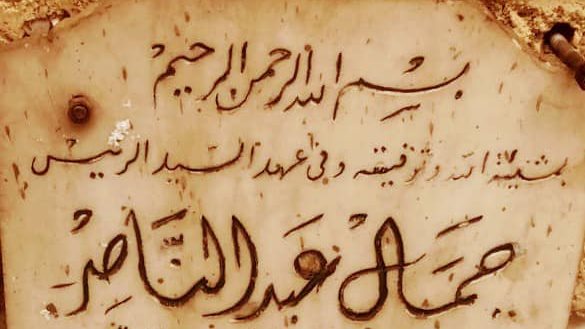 بسم الله الرحمن الرحيم
بمشيئة الله وتوفيقه وفى عهد السيد الرئيس
جمال عبد الناصر